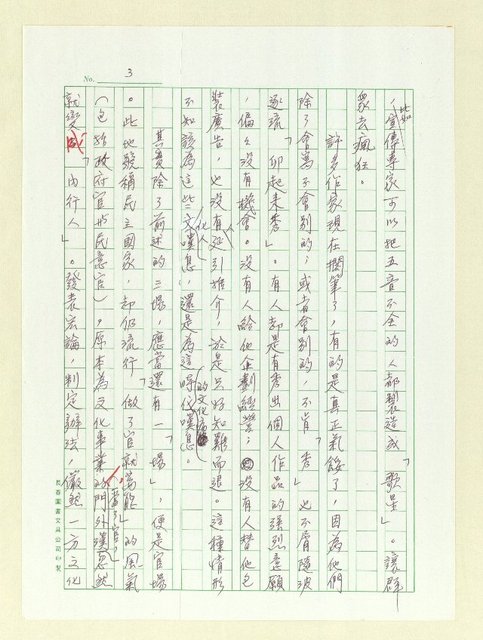 No. 3
，宣傳專家可以把五音不全的人都製造成「歌星」。讓群
此如
眾去瘋狂。
許多作家現在擱筆了，有的是真正氣餒了，因為他們
除了會寫不會別的；或者會別的，不肯「秀」也不屑隨波
逐流「卯起來秀」。有人都是有秀出個人作品的強烈意願
，偏偏沒有機會。沒有人給他企劃經營；沒有人替他包
裝廣告，也沒有人延引推介，於是只好知難而退。這種情形
不知該為這些文化人嘆息，還是為這時代的文化嘆息。
其實除了前述的三場，應當還有一「場」，便是官場
。此地號稱民主國家，卻仍流行「做了官就萬能」的風氣
（包括政府官吏或民意官）。原本為文化事業的門外漢忽然
當了官，
就變成「內行人」。發表宏論，制定辦法，儼然一方文化
長春圖書文具公司印製